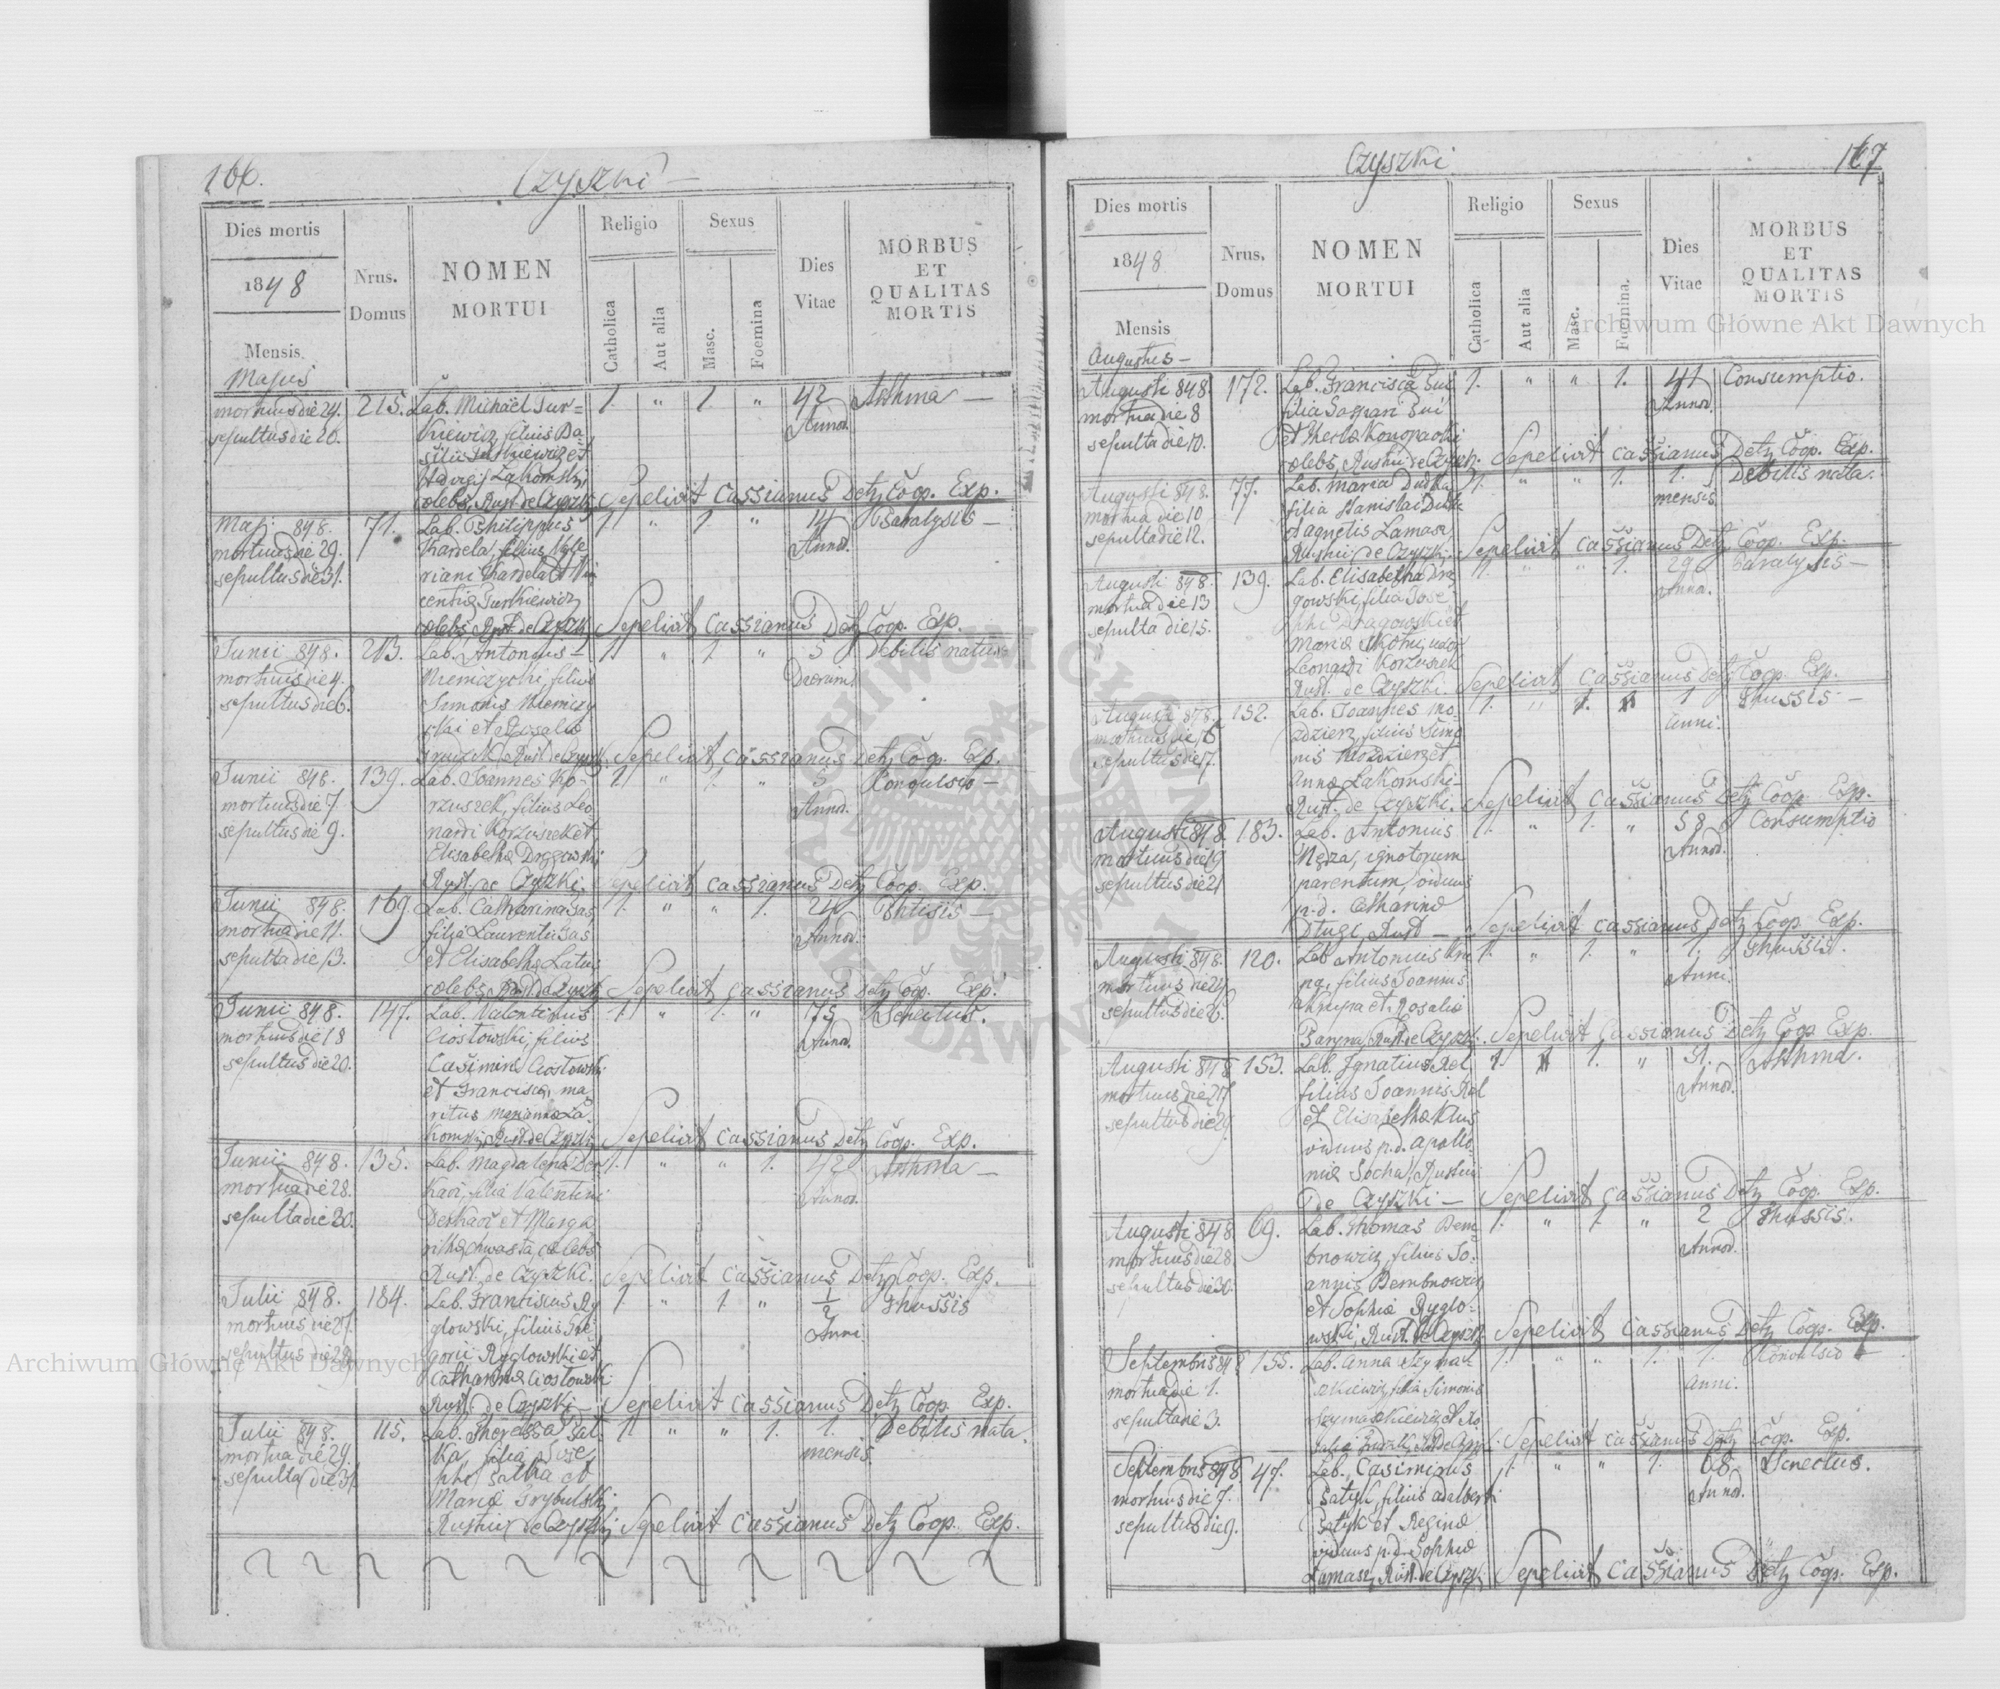 166.
Czyszki
Dies mortis
1848
Mensis
Majus
Nrus.
Domus
NOMEN
MORTUI
Religio
Catholica
Aut alia
Sexus
Masc.
Foemina
Dies
Vitae
MORBUS
ET
QUALITAS
MORTIS
mortuus die 24. 215. Lab. Michaël Tur= 1. " 1. " 42 Asthma —
sepultus die 26. kiewicz, filius Ba= Annor.
silii Turkiewicz et
Łakomski,
cœlebs, Rust. de Czyszki, Sepelivit Cassianus Detz Coop. Exp.
Maji 848. 71. Lab. Philippus 1. " 1. " 14 Paralysis —
mortuus die 29. Kardela, filius Vale Annor.
sepultus die 31. riani Kardela et Vin
centiæ Turkiewicz
cœlebs, Rust. de Czyszki Sepelivit Cassianus Detz Coop. Exp.
Junii 848. 213. Lab. Antonius 1. " 1. " 5 Debilis natus
mortuus die 4. Niemczycki, filius Dierum.
sepultus die 6. Simonis Niemczy
cki et Rosaliæ
Rust. de Czyszki. Sepelivit Cassianus Detz Coop. Exp.
Junii 848. 139. Lab. Joannes Ko= 1. " 1. " 5 Convulsio —
mortuus die 7. rzuszek, filius Leo Annor.
sepultus die 9. nardi Korzuszek et
Elisabethæ Dragowski
Rust. de Czyszki. Sepelivit Cassianus Detz Coop. Exp.
Junii 848. 169. Lab. Catharina Gas 1. " " 1. 24 Phtisis —
mortua die 11. filia Laurentii Gas Annor.
sepulta die 13. et Elisabethæ Latus
cœlebs, Rust. de Czyszki Sepelivit Cassianus Detz Coop. Exp.
Junii 848. 147. Lab. Valentinus 1. " 1. " 75 Senectus.
mortuus die 18 Ciostowski, filius Annor.
sepultus die 20. Casimiri Ciostowski
et Franciscæ, ma
ritus Mariannæ La
komski, Rust. de Czyszki Sepelivit Cassianus Detz Coop. Exp.
Junii 848. 135. Lab. Magdalena Der 1. " " 1. 42 Asthma —
mortua die 28. kacz, filia Valentini Annor.
sepulta die 30. Derkacz et Marga
rithæ Chwasta, cœlebs
Rust. de Czyszki. Sepelivit Cassianus Detz Coop. Exp.
Julii 848. 184. Lab. Franciscus Ry 1. " 1. " 1/2 Thussis
mortuus die 27. glowski, filius Gre Anni
sepultus die 29. gorii Ryglowski et
Catharinæ Ciostowski
Rust. de Czyszki — Sepelivit Cassianus Detz Coop. Exp.
Julii 848. 115. Lab. Theressa Sał= 1. " " 1. 1. Debilis nata.
mortua die 29. ka, filia Jose mensis.
sepulta die 31. phi Sałka et
Mariæ Grybulski
Rustici de Czyszki Sepelivit Cassianus Detz Coop. Exp.
Czyszki
167
Dies mortis
1848
Mensis
Augustus —
Nrus.
Domus
NOMEN
MORTUI
Religio
Catholica
Aut alia
Sexus
Masc.
Foemina.
Dies
Vitae
MORBUS
ET
QUALITAS
MORTIS
Augusti 848. 172. Lab. Francisca 1. " " 1. 41 Consumptio.
mortua die 8 filia Annor.
sepulta die 10. et Theclæ Konopacki
cœlebs, Rustici de Czyszki. Sepelivit Cassianus Detz Coop. Exp.
Augusti 848. 77. Lab. Maria Dudka 1. " " 1. 1. Debilis nata.
mortua die 10 filia Stanislai Dudka mensis
sepulta die 12. et Agnetis Lamasz,
Rustici de Czyszki. Sepelivit Cassianus Detz Coop. Exp.
Augusti 848. 139. Lab. Elisabetha Dra 1. " " 1. 29 Paralysis —
mortua die 13 gowski, filia Jose Anno.
sepulta die 15. phi Dragowski et
Mariæ uxor
Leonardi Korzuszek
Rust. de Czyszki. Sepelivit Cassianus Detz Coop. Exp.
Augusti 848. 152. Lab. Joannes Mo= 1. " 1. 1 Thussis —
mortuus die 16 zdzierz, filius Simo Anni.
sepultus die 17. nis Mozdzierz et
Annæ Łakomski —
Rust. de Czyszki. Sepelivit Cassianus Detz Coop. Exp.
Augusti 848. 183. Lab. Antonius 1. " 1. " 58 Consumptio
mortuus die 19 Nędza, ignotorum Annor.
sepultus die 21 parentum, viduus
p. d. Catharinæ
Długi, Rust — Sepelivit Cassianus Detz Coop. Exp.
Augusti 848. 120. Lab. Antonius Kru 1. " 1. " 1. Thussis.
mortuus die 24 pa, filius Joannis Anni.
sepultus die 26. Krupa et Rosaliæ
Baryna, Rust. de Czyszki. Sepelivit Cassianus Detz Coop. Exp.
Augusti 848 153. Lab. Ignatius Rol 1. 1. " 51. Asthma.
mortuus die 27 filius Joannis Rol Annor.
sepultus die 29. et Elisabethæ Klus
viduus p. d. Apollo=
niæ Socha, Rustici
de Czyszki — Sepelivit Cassianus Detz Coop. Exp.
Augusti 848 69. Lab. Thomas Dem= 1. " 1. " 2 Thussis.
mortuus die 28 bnowicz, filius Jo= Annor.
sepultus die 30. annis Dembnowicz
et Sophiæ Ryglo=
wski, Rust. de Czyszki Sepelivit Cassianus Detz Coop. Exp.
Septembris 848 155. Lab. Anna Szyma= 1. " " 1. 1. Convulsio —
mortua die 1. szkiewicz, filia Simonis Anni.
sepulta die 3. Szymaszkiewicz et Ro
saliæ Sepelivit Cassianus Detz Coop. Exp.
Septembris 848 47. Lab. Casimirus 1. " " 1. 68. Senectus.
mortuus die 7. Satyk, filius Adalberti Annor.
sepultus die 9. Satyk et Reginæ
viduus p. d. Sophiæ
Lamasz, Rust. de Czyszki. Sepelivit Cassianus Detz Coop. Exp.
Archiwum Główne Akt Dawnych
Archiwum Główne Akt Dawnych
ARCHIWUM GŁÓWNE AKT DAWNYCH